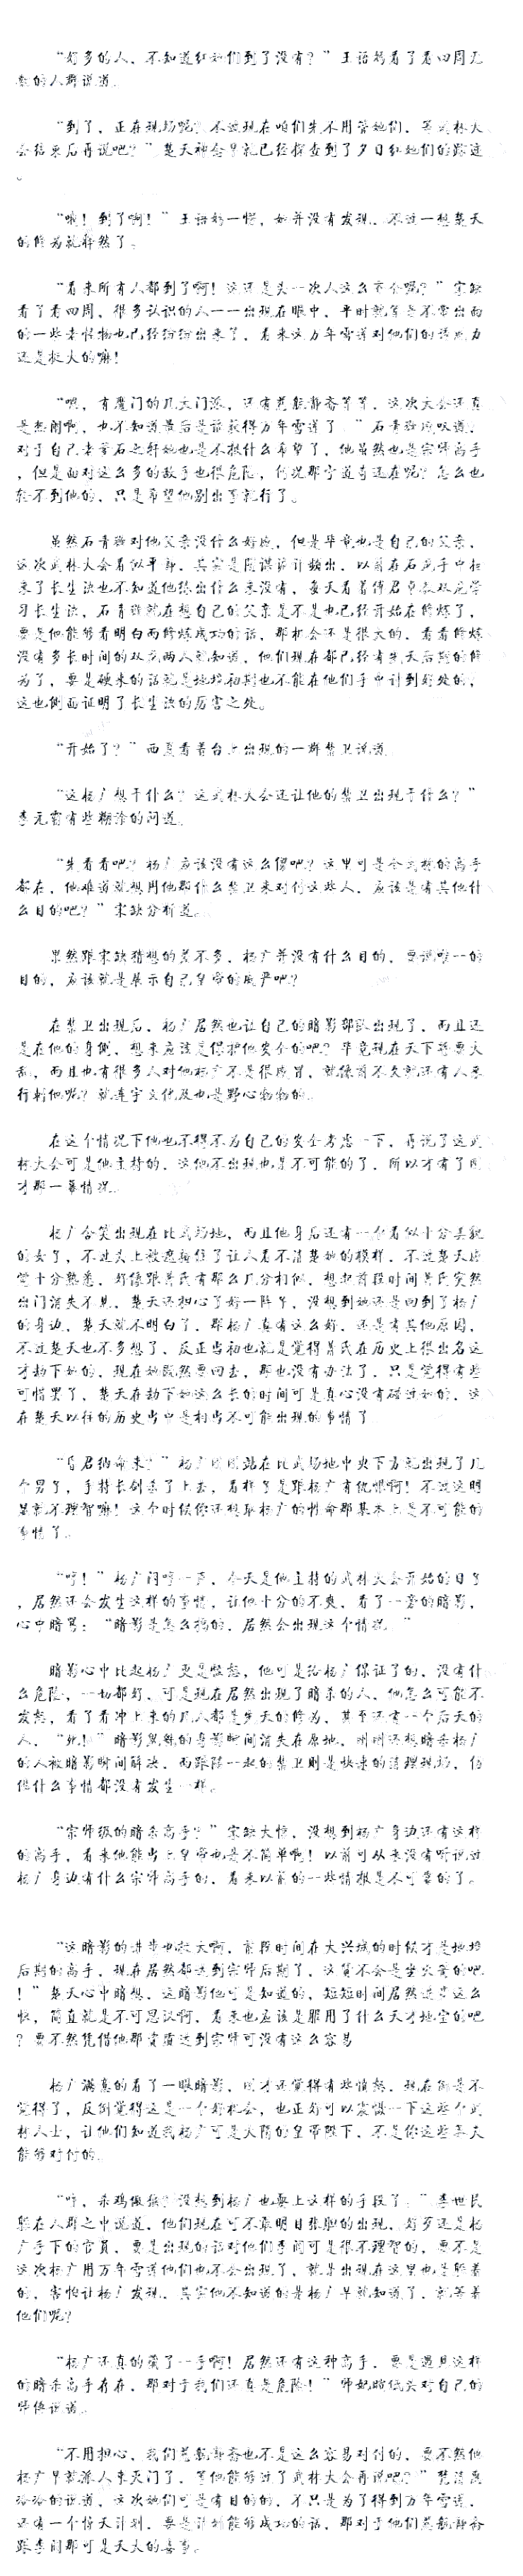 “好多的人，不知道红她们到了没有？”王语嫣看了看四周无
数的人群说道。
“到了，正在现场呢？不过现在咱们先不用管她们，等武林大
会结束后再说吧？”楚天神念早就已经探查到了夕日红她们的踪迹
。
“哦！到了啊！”王语嫣一愣，她并没有发现，不过一想楚天
的修为就释然了。
“看来所有人都到了啊！这还是头一次人这么齐全呢？”宋缺
看了看四周，很多认识的人一一出现在眼中，平时就算是不常出面
的一些老怪物也已经纷纷出来了，看来这万年雪道对他们的诱惑力
还是挺大的嘛！
“嗯，有魔门的几大门派，还有慈航静斋等等，这次大会还真
是热闹啊，也不知道最后是谁获得万年雪道了。”石青璇
对于自己老爹石之轩她也是不报什么希望了，他虽然也是宗师高手
，但是面对这么多的敌手也很危险，何况那宁道奇还在呢？怎么也
轮不到他的，只是希望他别出事就行了。
虽然石青璇对他父亲没什么好感，但是毕竟也是自己的父亲，
这次武林大会看似平静，其实是阴谋诡计频出，以前在石龙手中抢
来了长生诀也不知道他练出什么来没有，每天看着傅君卓教双龙学
习长生诀，石青璇就在想自己的父亲是不是也已经开始在修炼了，
要是他能够看明白而修炼成功的话，那机会还是很大的，看看修炼
没有多长时间的双龙两人就知道，他们现在都已经有先天后期的修
为了，要是硬来的话就是地境初期也不能在他们手中讨到好处的，
这也侧面证明了长生诀的厉害之处。
“开始了？”西夏看着台上出现的一群禁卫说道。
“这杨广想干什么？这武林大会还让他的禁卫出现干什么？”
李元霸有些糊涂的问道。
“先看看吧？杨广应该没有这么傻吧？这里可是全武林的高手
都在，他难道就想用他那什么禁卫来对付这些人，应该是有其他什
么目的吧？”宋缺分析道。
果然跟宋缺猜想的差不多，杨广并没有什么目的，要说唯一的
目的，应该就是展示自己皇帝的威严吧？
在禁卫出现后，杨广居然也让自己的暗影部队出现了，而且还
是在他的身侧，想来应该是保护他安全的吧？毕竟现在天下将要大
乱，而且也有很多人对他杨广不是很感冒，就像前不久就还有人来
行刺他呢？就连宇文化及也是野心勃勃的。
在这个情况下他也不得不为自己的安全考虑一下，再说了这武
林大会可是他主持的，这他不出现也是不可能的了，所以才有了刚
才那一幕情况。
杨广含笑出现在比武场地，而且他身后还有一个看似十分美貌
的女子，不过头上被遮掩住了让人看不清楚她的模样，不过楚天感
觉十分熟悉，好像跟萧氏有那么几分相似，想起前段时间萧氏突然
出门消失不见，楚天还担心了好一阵子，没想到她还是回到了杨广
的身边，楚天就不明白了，那杨广真有这么好，还是有其他原因，
不过楚天也不多想了，反正当初也就是觉得萧氏在历史上很出名这
才劫下她的，现在她既然要回去，那也没有办法了，只是觉得有些
可惜罢了，楚天在劫下她这么长的时间可是真心没有碰过她的，这
在楚天以往的历史当中是相当不可能出现的事情了
“昏君纳命来？”杨广刚刚站在比武场地中央下方就出现了几
个男子，手持长剑杀了上去，看样子是跟杨广有仇恨啊！不过这明
显就不理智嘛！这个时候你还想取杨广的性命那基本上是不可能的
事情了。
“哼！”杨广闷哼一声，今天是他主持的武林大会开始的日子
，居然还会发生这样的事情，让他十分的不爽，看了一旁的暗影，
心中暗骂：“暗影是怎么搞的，居然会出现这个情况。”
暗影心中比起杨广更是惊怒，他可是给杨广保证了的，没有什
么危险，一切都好，可是现在居然出现了暗杀的人，他怎么可能不
发怒，看了看冲上来的几人都是先天的修为，甚至还有一个后天的
人，“死！”暗影鬼魅的身影瞬间消失在原地，刚刚还想暗杀杨广
的人被暗影瞬间解决，而跟随一起的禁卫则是快来的清理现场，仿
佛什么事情都没有发生一样。
“宗师级的暗杀高手？”宋缺大惊，没想到杨广身边还有这样
的高手，看来他能当上皇帝也是不简单啊！以前可从来没有听说过
杨广身边有什么宗师高手的，看来以前的一些情报是不可靠的了。
“这暗影的进步也挺大啊，前段时间在大兴城的时候才是地境
后期的高手，现在居然都达到宗师后期了，这货不会是坐火箭的吧
！”楚天心中暗想，这暗影他可是知道的，短短时间居然进步这么
快，简直就是不可思议啊，看来也应该是服用了什么天才地宝的吧
？要不然凭借他那资质达到宗师可没有这么容易
杨广满意的看了一眼暗影，刚才还觉得有些愤怒，现在倒是不
觉得了，反倒觉得这是一个好机会，也正好可以震慑一下这些个武
林人士，让他们知道我杨广可是大隋的皇帝陛下，不是你这些某天
能够对付的。
“哼，杀鸡儆猴？没想到杨广也耍上这样的手段了。”李世民
躲在人群之中说道，他们现在可不敢明目张胆的出现，好歹还是杨
广手下的官员，要是出现的话对他们李阀可是很不理智的，要不是
这次杨广用万年雪道他们也不会出现了，就是出现在这里也是躲着
的，害怕让杨广发现，其实他不知道的是杨广早就知道了，就等着
他们呢？
“杨广还真的藏了一手啊！居然还有这种高手，要是遇见这样
的暗杀高手存在，那对于我们还真是危险！”师妃暄低头对自己的
师傅说道。
“不用担心，我们慈航静斋也不是这么容易对付的，要不然他
杨广早就派人来灭门了，等他能够过了武林大会再说吧？”梵清惠
冷冷的说道，这次她们可是有目的的，不只是为了得到万年雪道，
还有一个惊天计划，要是计划能够成功的话，那对于他们慈航静斋
跟李阀那可是天大的喜事。